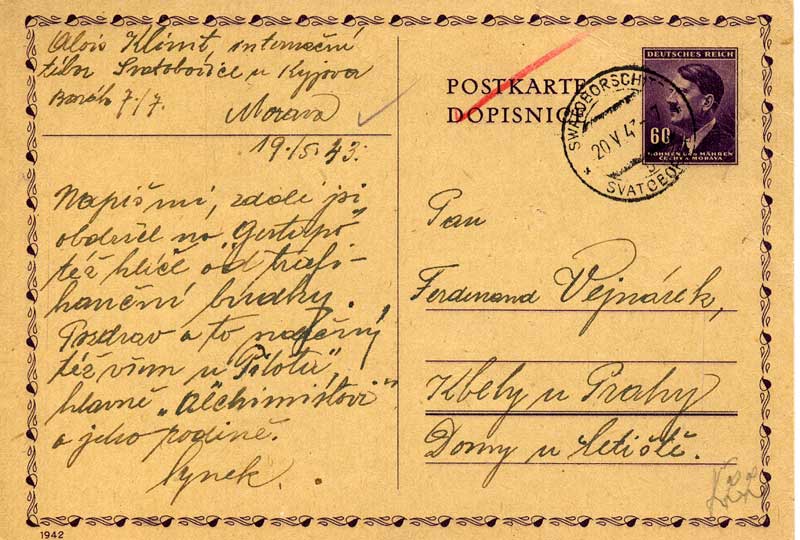 Alois Klimt, internační
tábor Svatobořice u Kyjova
Barák 7/7.
Morava
19./5. 43.
Napiš mi, zdali jsi
obdržel na „Gestapo“
též klíč od
budky.
Pozdrav a to
též všem u „Pilotů“,
hlavně „Alchimistovi“
a jeho rodině.
Synek.
1942
POSTKARTE
DOPISNICE
DEUTSCHES REICH
60
BÖHMEN UND MÄHREN
ČECHY A MORAVA
20.V.43
SVATOBOŘ
Pan
Ferdinand Vejnárek,
Kbely u Prahy
Domy u letiště.